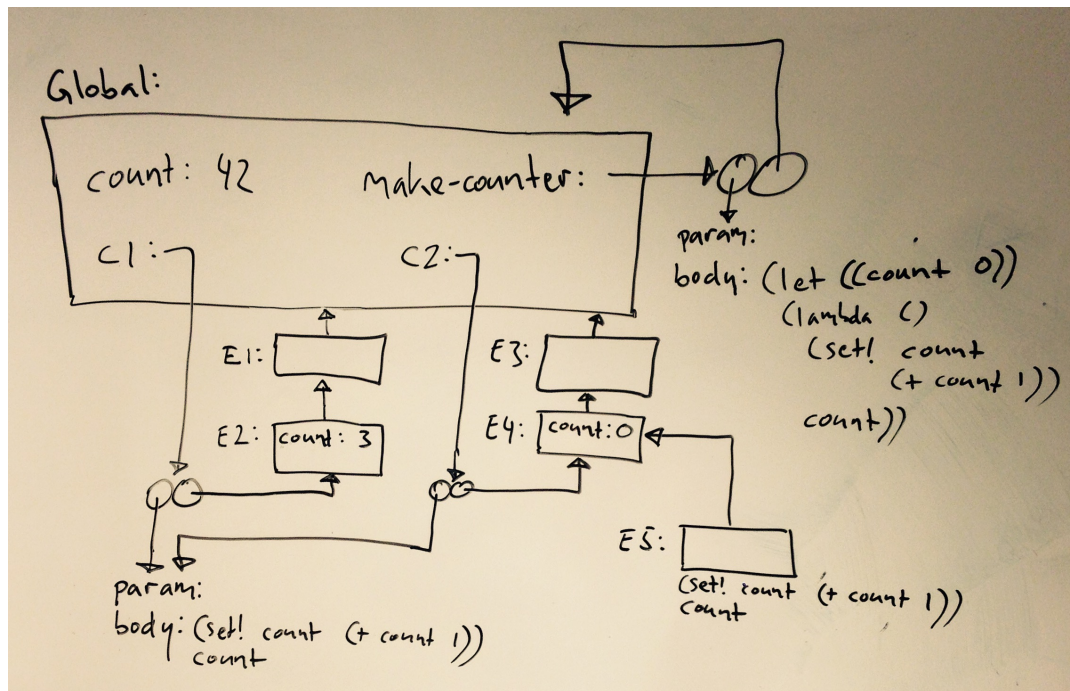 Global:
count: 42
make-counter:
C1:
C2:
param:
body: (let ((count 0))
(lambda ()
(set! count
(+ count 1))
count))
E1:
E3:
E2:
count: 3
E4:
count: 0
E5:
(set! count (+ count 1))
count
param:
body: (set! count (+ count 1))
count